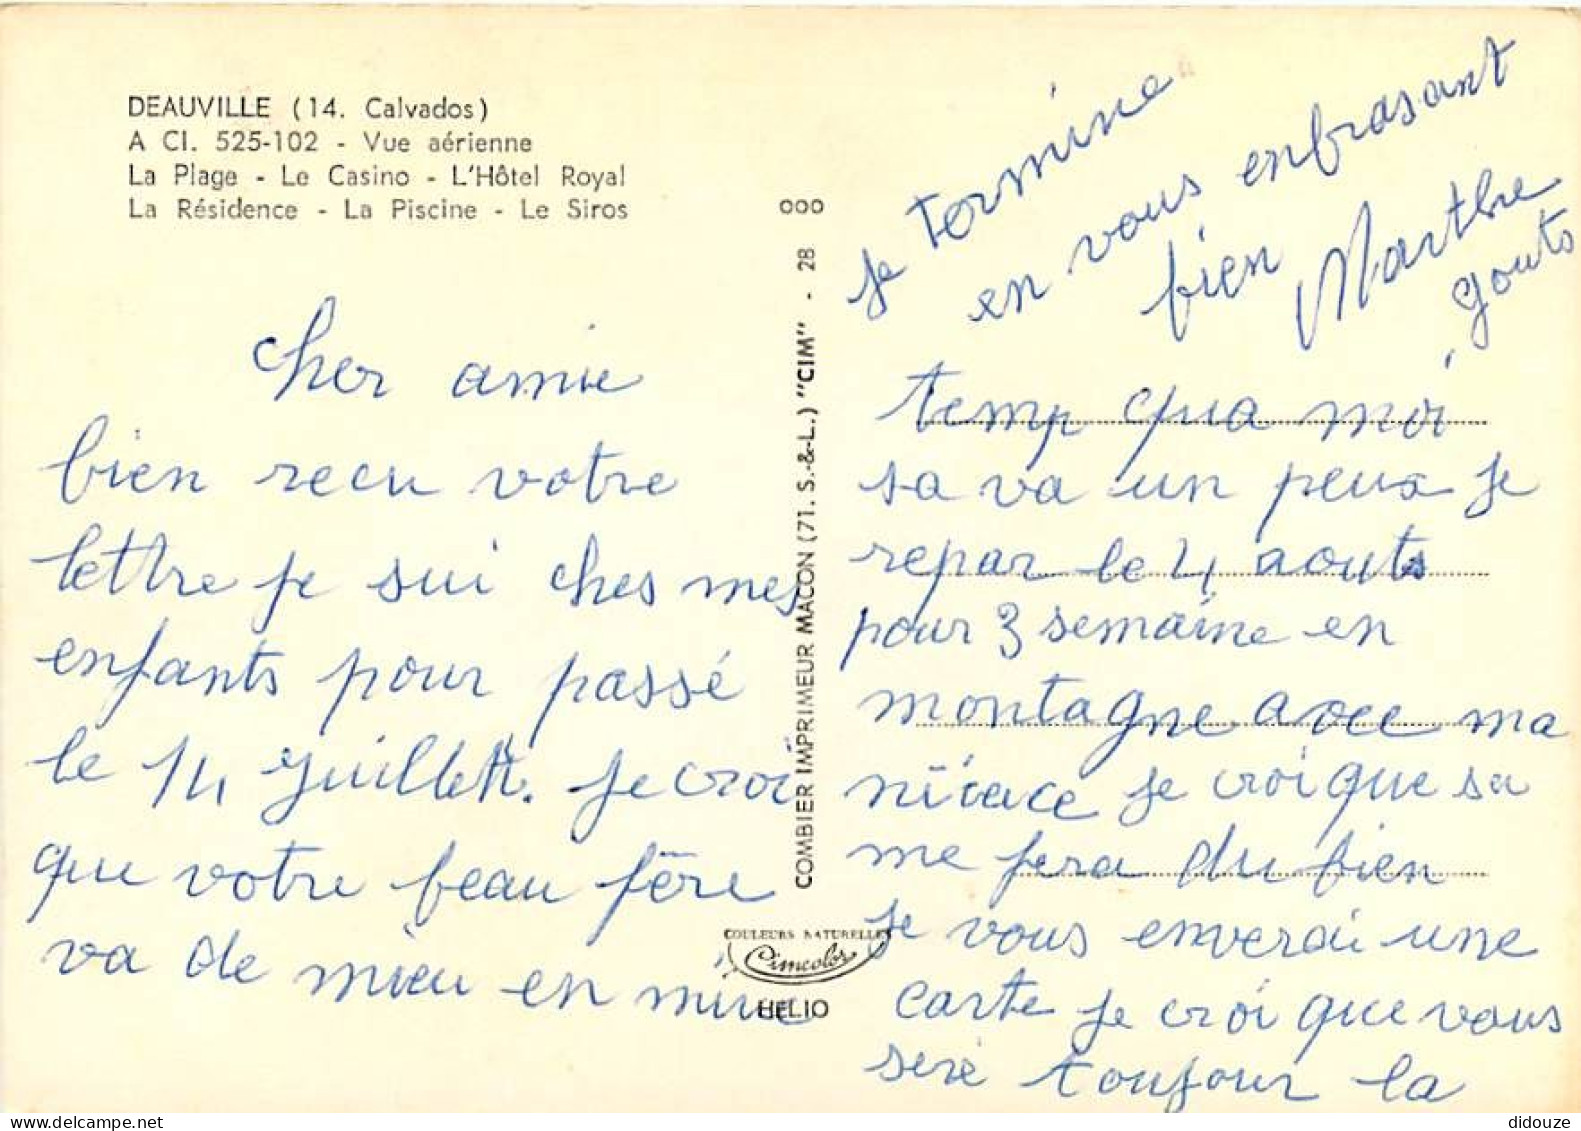 DEAUVILLE (14. Calvados)
A Cl. 525-102 - Vue aérienne
La Plage - Le Casino - L'Hôtel Royal
La Résidence - La Piscine - Le Siros
cher amie
bien recu votre
lettre je sui ches mes
enfants pour passé
le 14 juillett. je croi
que votre beau fère
va de mieu en mieu
COMBIER IMPRIMEUR MACON (71. S.-&-L.) "CIM" - 28 000
COULEURS NATURELLES
Cimcolor
HELIO
temp qua moi
sa va un peux je
repar le 4 aouts
pour 3 semaine en
montagne avec ma
je croi que sa
me fera du bien
je vous enverai une
carte je croi que vous
seré toujour la
je termine
en vous enbrasant
bien Marthe
gouts
didouze